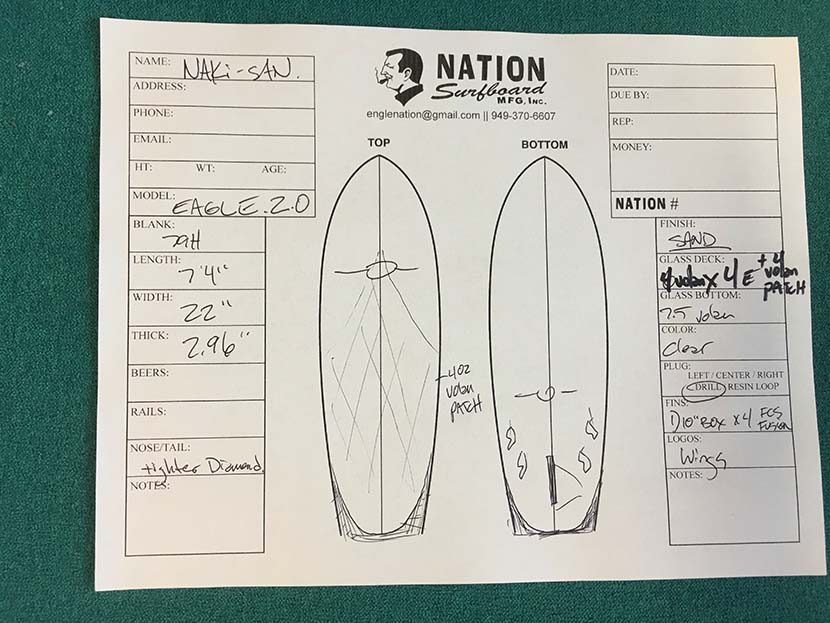 NAME: NAKI-SAN.
ADDRESS:
PHONE:
EMAIL:
HT: WT: AGE:
MODEL: EAGLE 2.0
BLANK: 79H
LENGTH: 7'4"
WIDTH: 22"
THICK: 2.96"
BEERS:
RAILS:
NOSE/TAIL: tighter Diamond.
NOTES:
NATION
Surfboard
MFG, INC.
englenation@gmail.com || 949-370-6607
TOP
BOTTOM
4oz
volan
PATCH
DATE:
DUE BY:
REP:
MONEY:
NATION #
FINISH: SAND
GLASS DECK: 4 volan x 4 E + 4
volan
PATCH
GLASS BOTTOM:
7.5 volan
COLOR:
Clear
PLUG:
LEFT / CENTER / RIGHT
DRILL RESIN LOOP
FINS:
10" BOX x 4 FCS
FUSION
LOGOS:
Wings
NOTES: